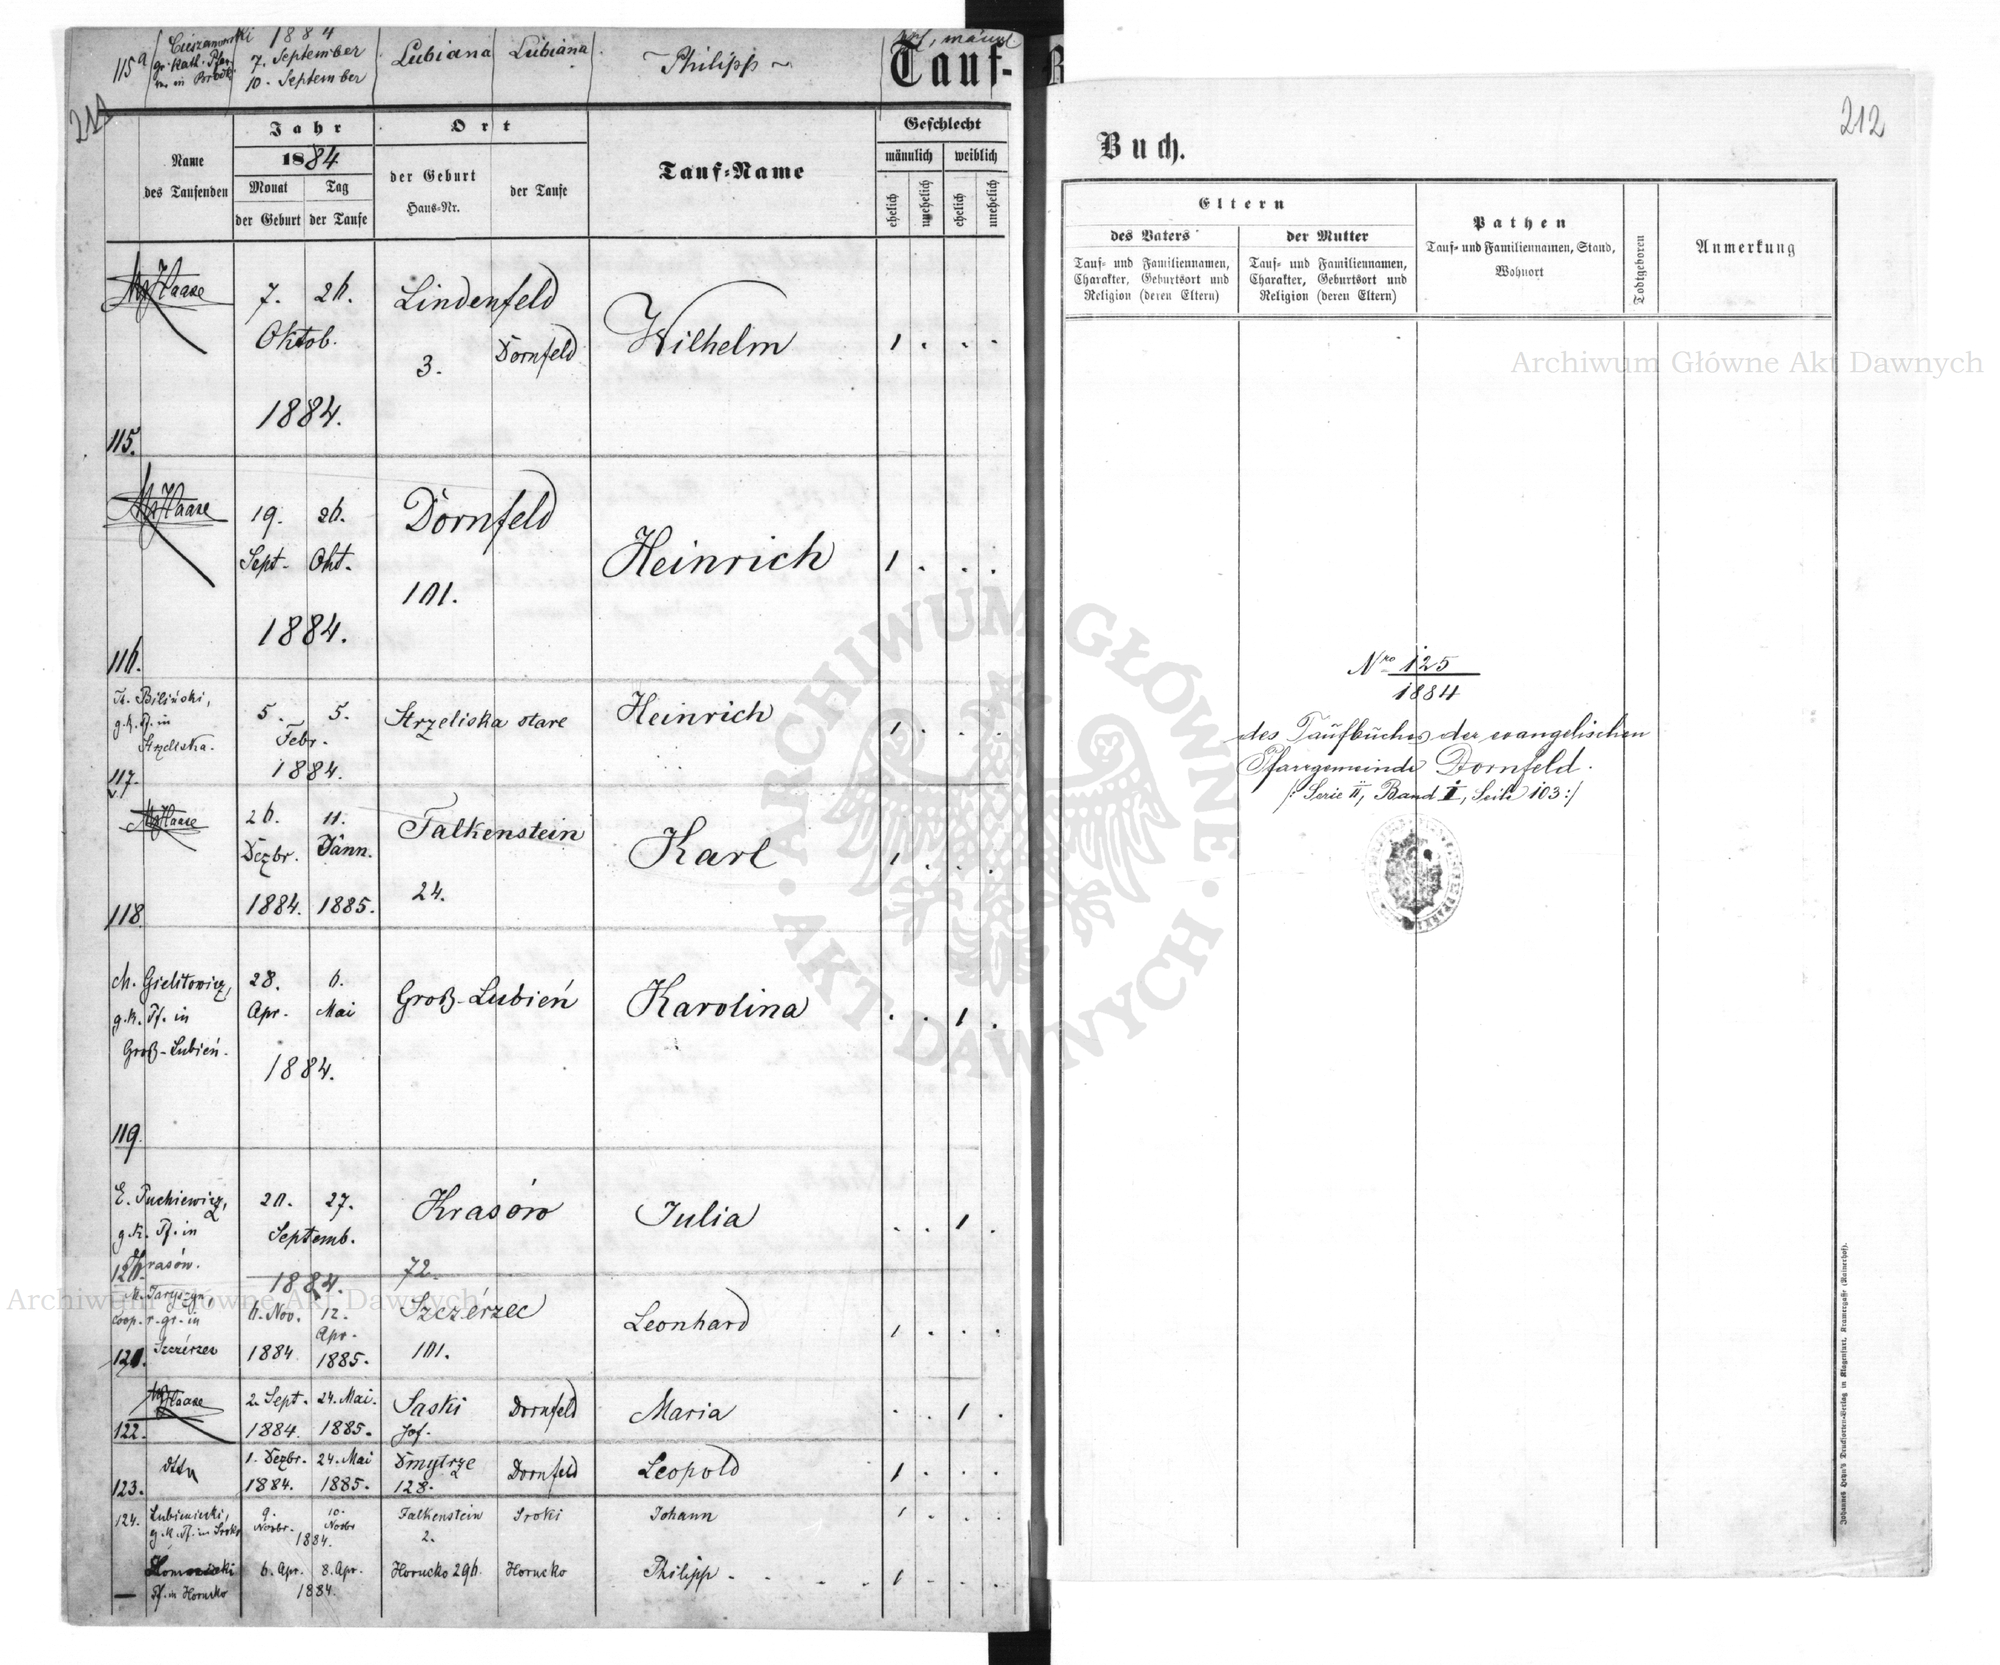 115a
Cieszanowski
gr. kath. Pfar
in Brodki
1884
7. September
10. September
Lubiana
Lubiana
Philipp
männl
Tauf-
Name
des Taufenden
Jahr
1884
Monat
Tag
der Geburt
der Taufe
Ort
der Geburt
Haus-Nr.
der Taufe
Tauf-Name
Geschlecht
männlich
weiblich
ehelich
unehelich
ehelich
unehelich
115.
Haase
7. 26.
Oktob.
1884.
Lindenfeld
3.
Dornfeld
Wilhelm
1 . . .
116.
Haase
19. 26.
Sept. Okt.
1884.
Dornfeld
101.
Heinrich
1 . . .
117.
Biliński,
g. k. Pf. in
Strzeliska.
5. 5.
Febr.
1884.
Strzeliska stare
Heinrich
1 . . .
118
Haase
26. 11.
Dezbr. Jänn.
1884. 1885.
Falkenstein
24.
Karl
1 . . .
119.
M. Gielitowicz,
g. k. Pf. in
Groß-Lubień.
28. 6.
Apr. Mai
1884.
Groß-Lubień
Karolina
. . 1 .
120.
E. Puchiewicz,
g. k. Pf. in
Krasów.
20. 27.
Septemb.
1884.
Krasów
72.
Julia
. . 1 .
121.
coop. r. gr. in
Szczérzec
6. Nov. 12.
Apr.
1884 1885.
Szczérzec
101.
Leonhard
1 . . .
122.
Haase
2. Sept. 24. Mai.
1884. 1885.
Saski
Dornfeld
Maria
. . 1 .
123.
dtto
1. Dezbr. 24. Mai
1884. 1885.
Dmytrze
128.
Dornfeld
Leopold
1 . . .
124.
Lubieniecki,
g. k. Pf. in Sroki
9. 10.
Novbr. Novbr
1884.
Falkenstein
2.
Sroki
Johann
1 . . .
Pf. in Horucko
6. Apr. 8. Apr.
1884.
Horucko 296.
Horucko
Philipp
1 . . .
212
Buch.
Eltern
des Vaters
Tauf- und Familiennamen,
Charakter, Geburtsort und
Religion (deren Eltern)
der Mutter
Tauf- und Familiennamen,
Charakter, Geburtsort und
Religion (deren Eltern)
Pathen
Tauf- und Familiennamen, Stand,
Wohnort
Todtgeboren
Anmerkung
Nro 125
1884
des Taufbuches der evangelischen
Pfarrgemeinde Dornfeld.
/: Serie II, Band I, Seite 103 :/
Johannes Heyn's Drucksorten-Verlag in Klagenfurt, Kramergasse (Rainerhof).
Archiwum Główne Akt Dawnych
Archiwum Główne Akt Dawnych
ARCHIWUM GŁÓWNE · AKT DAWNYCH ·